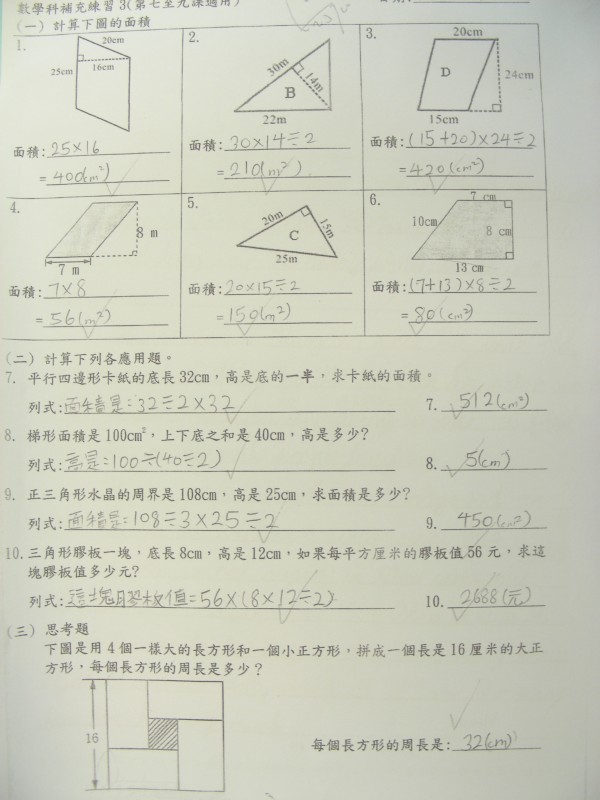 數學科補充練習3(第七至九課適用)
(一) 計算下圖的面積
1.
20cm
25cm
16cm
面積:25×16
=400(cm²)
2.
30m
14m
B
22m
面積:30×14÷2
=210(m²)
3.
20cm
D
24cm
15cm
面積:(15+20)×24÷2
=420(cm²)
4.
8 m
7 m
面積:7×8
=56(m²)
5.
20m
15m
C
25m
面積:20×15÷2
=150(m²)
6.
7 cm
10cm
8 cm
13 cm
面積:(7+13)×8÷2
=80(cm²)
(二) 計算下列各應用題。
7. 平行四邊形卡紙的底長32cm,高是底的一半,求卡紙的面積。
列式:面積是:32÷2×32 7. 512(cm²)
8. 梯形面積是100cm²,上下底之和是40cm,高是多少?
列式:高是:100÷(40÷2) 8. 5(cm)
9. 正三角形水晶的周界是108cm,高是25cm,求面積是多少?
列式:面積是:108÷3×25÷2 9. 450(cm²)
10. 三角形膠板一塊,底長8cm,高是12cm,如果每平方厘米的膠板值56元,求這
塊膠板值多少元?
列式:這塊膠板值=56×(8×12÷2) 10. 2688(元)
(三) 思考題
下圖是用4個一樣大的長方形和一個小正方形,拼成一個長是16厘米的大正
方形,每個長方形的周長是多少?
16
每個長方形的周長是:32(cm)